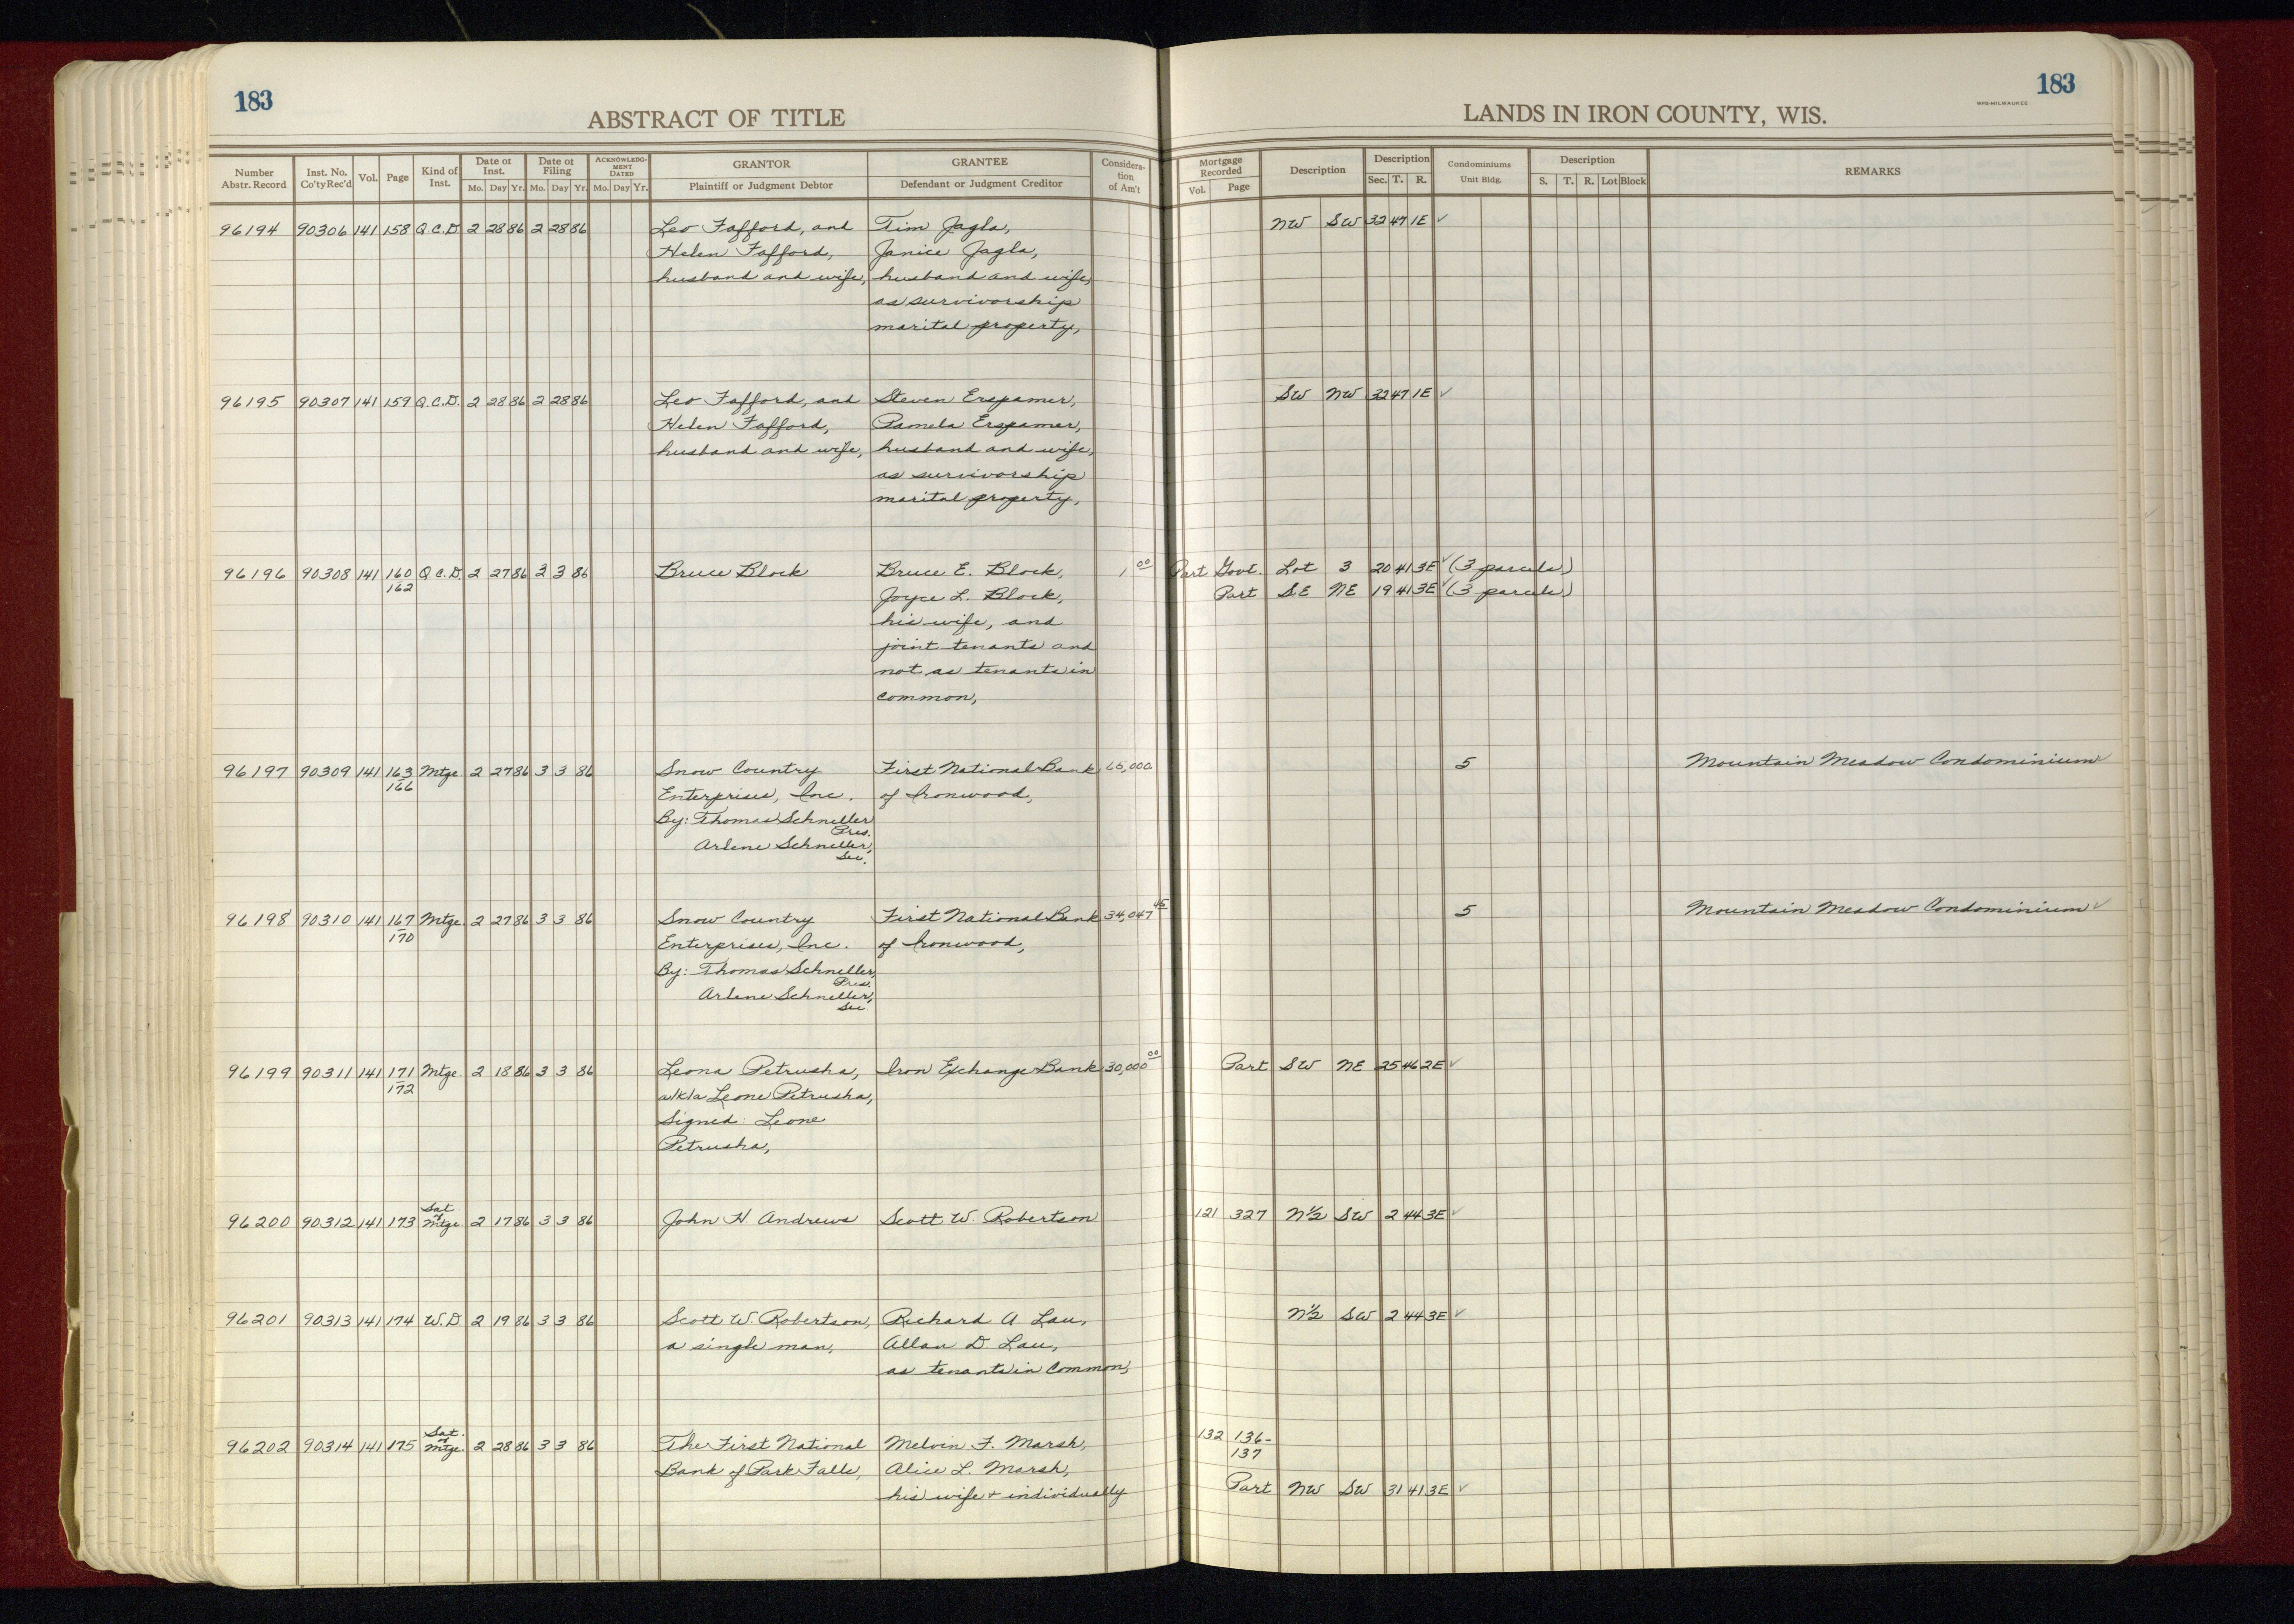 183
183
ABSTRACT OF TITLE
LANDS IN IRON COUNTY, WIS.
MPB-MILWAUKEE
Number Abstr. Record Inst. No. Co'ty Rec'd Vol. Page Kind of Inst. Date of Inst. Mo. Day Yr. Date of Filing Mo. Day Yr. ACKNOWLEDGMENT DATED Mo. Day Yr. GRANTOR Plaintiff or Judgment Debtor GRANTEE Defendant or Judgment Creditor Consideration of Am't Mortgage Recorded Vol. Page Description Description Sec. T. R. Condominiums Unit Bldg. Description S. T. R. Lot Block REMARKS
96194 90306 141 158 Q.C.D. 2 28 86 2 28 86 Leo Fafford, and Tim Jagla, NW SW 32 47 1E ✓
Helen Fafford, Janice Jagla,
husband and wife, husband and wife,
as survivorship
marital property,
96195 90307 141 159 Q.C.D. 2 28 86 2 28 86 Leo Fafford, and Steven Erspamer, SW NW 32 47 1E ✓
Helen Fafford, Pamela Erspamer,
husband and wife, husband and wife,
as survivorship
marital property,
96196 90308 141 160 Q.C.D. 2 27 86 3 3 86 Bruce Block Bruce E. Block, 1 00 Part Govt. Lot 3 20 41 3E ✓ (3 parcels)
162 Joyce L. Block, Part SE NE 19 41 3E ✓ (3 parcels)
his wife, and
joint tenants and
not as tenants in
common,
96197 90309 141 163 Mtge. 2 27 86 3 3 86 Snow Country First National Bank 65,000. 5 Mountain Meadow Condominium ✓
166 Enterprises, Inc. of Ironwood,
By: Thomas Schneller
Pres.
Arlene Schneller,
Sec.
96198 90310 141 167 Mtge. 2 27 86 3 3 86 Snow Country First National Bank 34,047 45 5 Mountain Meadow Condominium ✓
170 Enterprises, Inc. of Ironwood,
By: Thomas Schneller,
Pres.
Arlene Schneller,
Sec.
96199 90311 141 171 Mtge. 2 18 86 3 3 86 Leona Petrusha, Iron Exchange Bank 30,000 00 Part SW NE 25 46 2E ✓
172 a/k/a Leone Petrusha,
Signed: Leone
Petrusha,
96200 90312 141 173 Sat. of Mtge. 2 17 86 3 3 86 John H Andrews Scott W. Robertson 121 327 N½ SW 2 44 3E ✓
96201 90313 141 174 W.D 2 19 86 3 3 86 Scott W. Robertson, Richard A Lau, N½ SW 2 44 3E ✓
a single man, Allan D. Lau,
as tenants in common,
96202 90314 141 175 Sat. of Mtge. 2 28 86 3 3 86 The First National Melvin F. Marsh, 132 136-
137
Bank of Park Falls, Alice L. Marsh,
his wife + individually Part NW SW 31 41 3E ✓